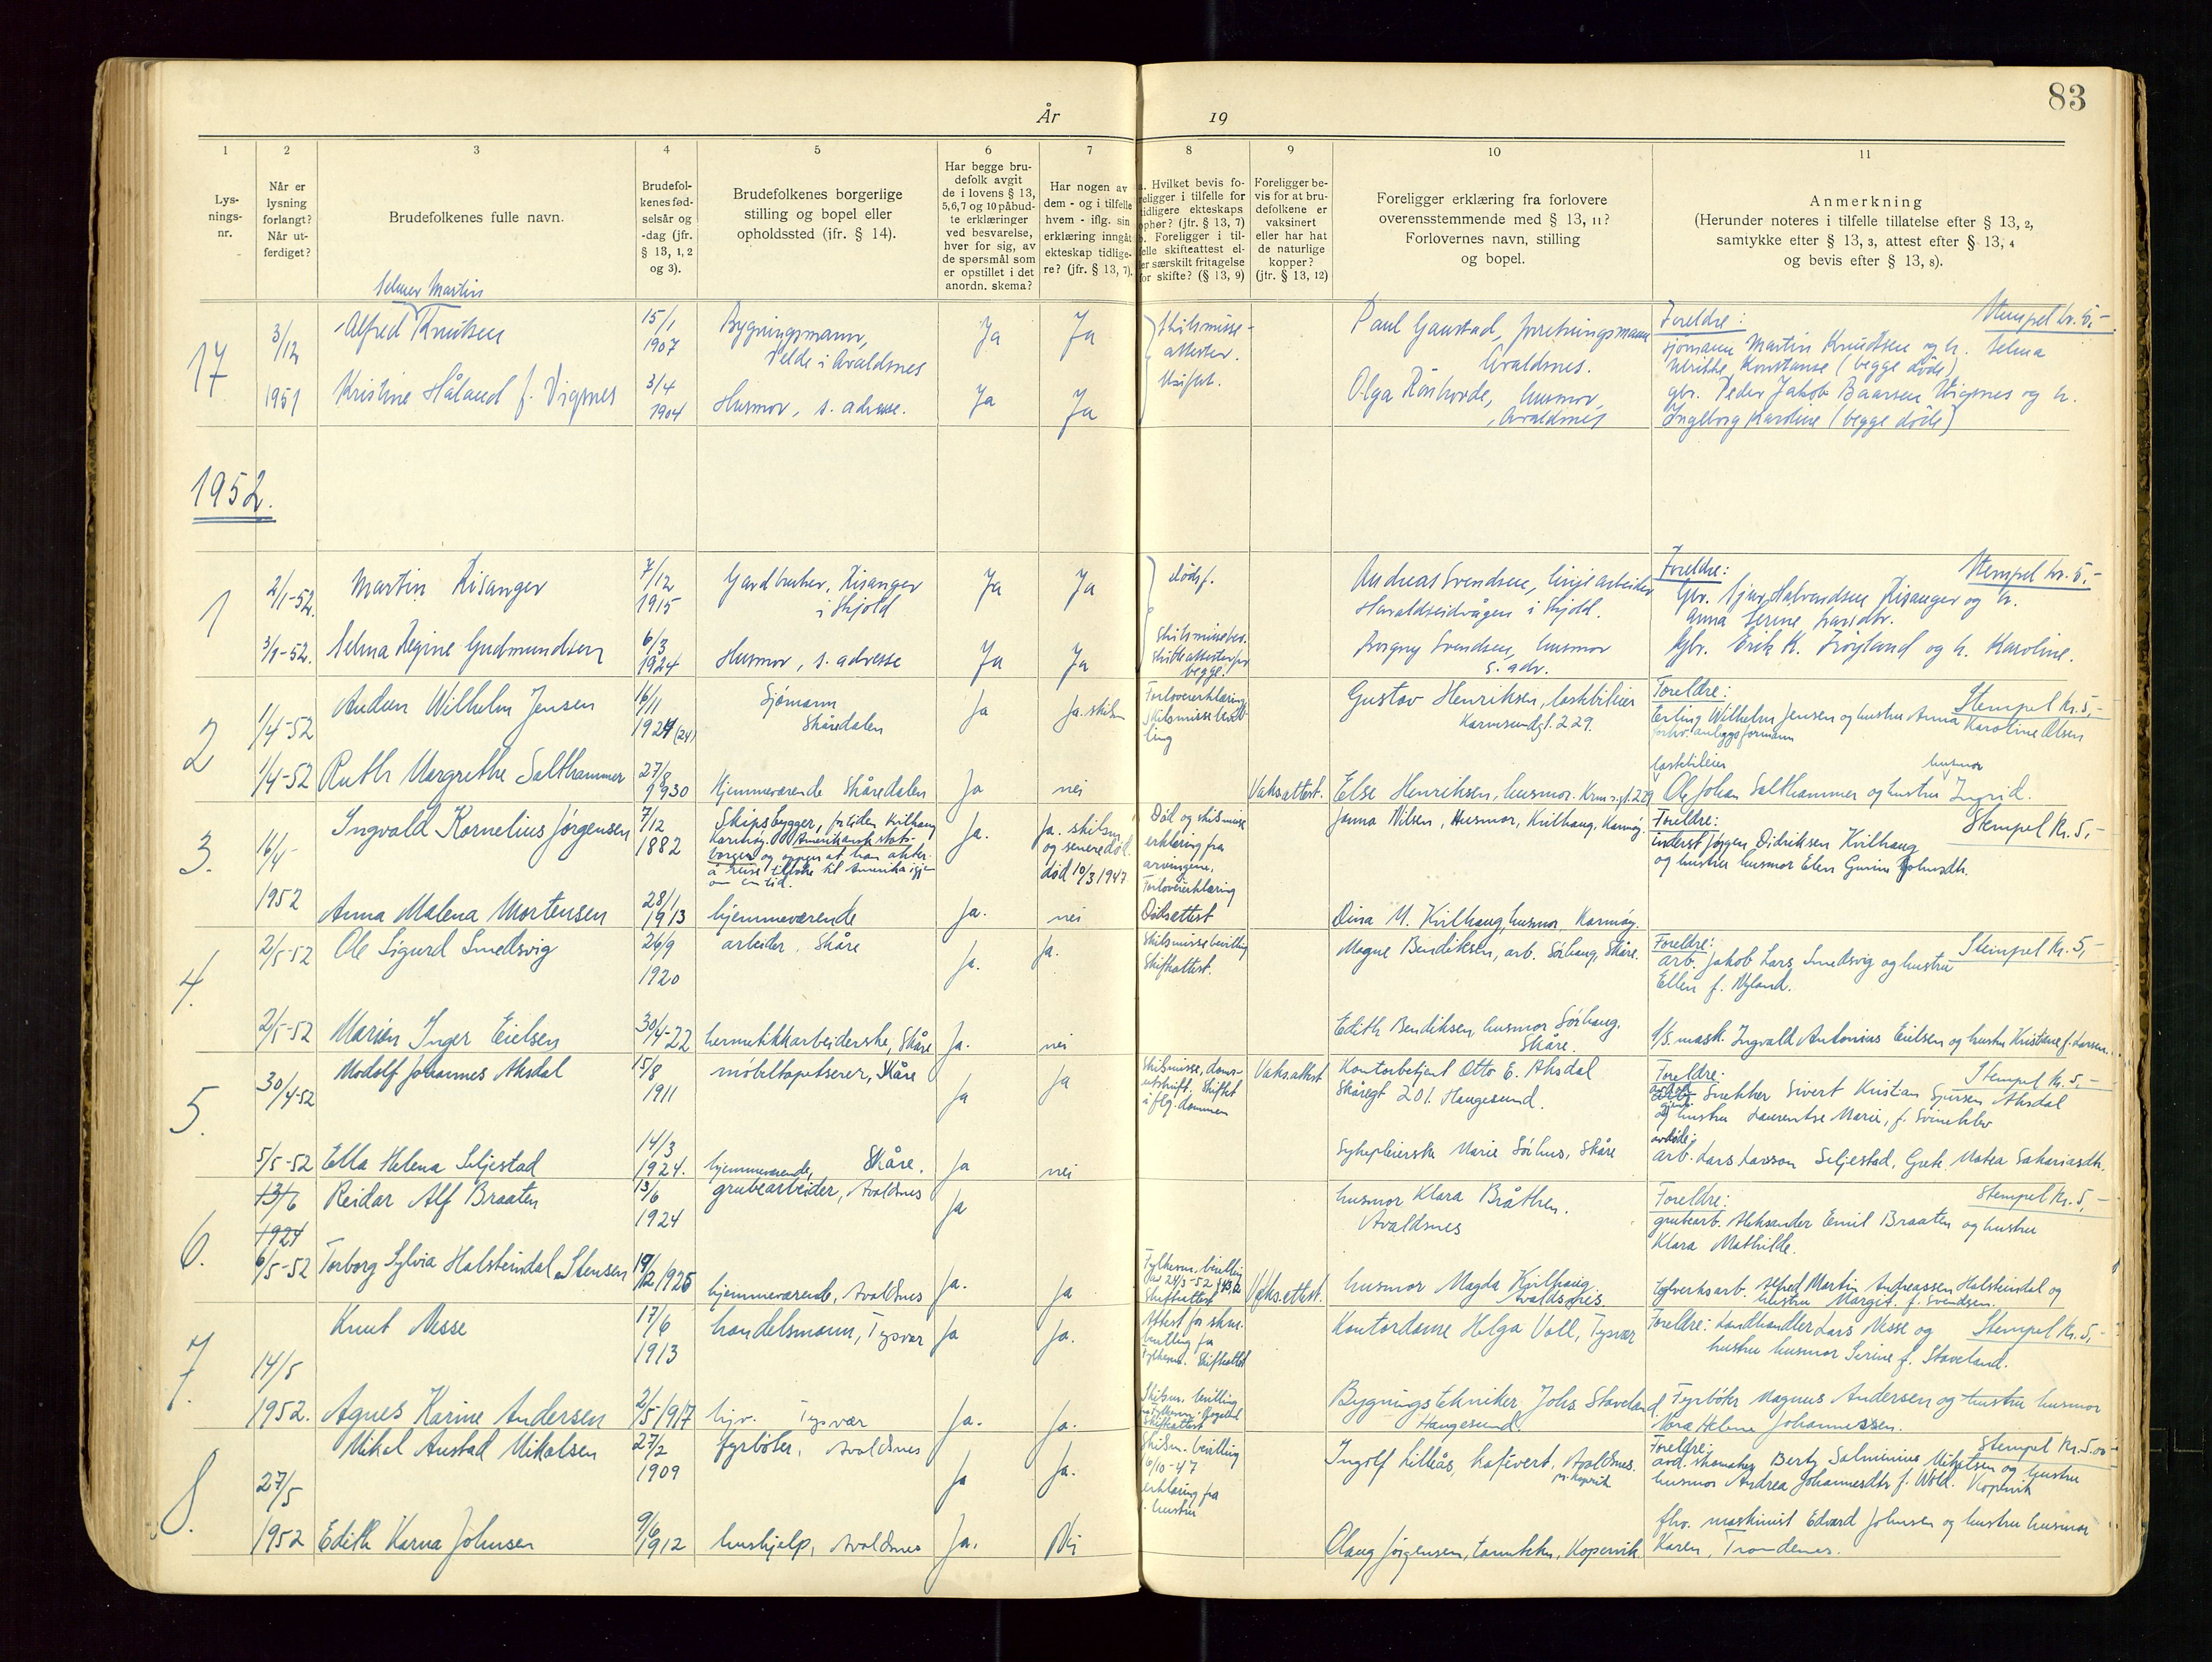 83
År 19
1
Lysnings-
nr.
2
Når er
lysning
forlangt?
Når ut-
ferdiget?
3
Brudefolkenes fulle navn.
4
Brudefol-
kenes fød-
selsår og
-dag (jfr.
§ 13, 1, 2
og 3).
5
Brudefolkenes borgerlige
stilling og bopel eller
opholdssted (jfr. § 14).
6
Har begge bru-
defolk avgit
de i lovens § 13,
5, 6, 7 og 10 påbud-
te erklæringer
ved besvarelse,
hver for sig, av
de spørsmål som
er opstillet i det
anordn. skema?
7
Har nogen av
dem - og i tilfelle
hvem - iflg. sin
erklæring inngått
ekteskap tidlige-
re? (jfr. § 13, 7).
8
a. Hvilket bevis fo-
religger i tilfelle for
tidligere ekteskaps
ophør? (jfr. § 13, 7)
b. Foreligger i til-
felle skifteattest el-
ler særskilt fritagelse
for skifte? (§ 13, 9)
9
Foreligger be-
vis for at bru-
defolkene er
vaksinert
eller har hat
de naturlige
kopper?
(jfr. § 13, 12)
10
Foreligger erklæring fra forlovere
overensstemmende med § 13, 11?
Forlovernes navn, stilling
og bopel.
11
Anmerkning
(Herunder noteres i tilfelle tillatelse efter § 13, 2,
samtykke efter § 13, 3, attest efter § 13, 4
og bevis efter § 13, 8).
17
3/12
1951
Selmer Martin
Alfred Knutsen
15/1
1907
Bygningsmann,
Velde i Avaldsnes
Ja
Ja
Skilsmisse-
attester.
Skiftet.
Paul Gaustad, forretningsmann
Avaldsnes.
Foreldre: Stempel kr. 5,-
sjømann Martin Knudsen og h. Selma
Ulrikke Konstanse (begge døde)
Kristine Håland f. Vignes
3/4
1904
Husmor, s. adresse.
Ja
Ja
Olga Røshovde, husmor,
Avaldsnes
gbr. Peder Jakob Baarsen Vignes og h.
Ingeborg Karoline (begge døde)
1952.
1
2/1-52.
Martin Risanger
7/12
1915
Gardbruker, Risanger
i Skjold
Ja
Ja
dødsf.
Andreas Svendsen, linjearbeider
Haraldseidvågen i Skjold.
Foreldre: Stempel kr. 5,-
Gbr. Sjur Halvardsen Risanger og h.
Anna Serine
3/1-52.
Selma Regine Gudmundsen
6/3
1924
Husmor, s. adresse
Ja
Ja
Skilsmissebev.
Skifteattester for
begge.
Borgny Svendsen, husmor
s. adr.
Gbr. Erik K. Frøyland og h. Karoline.
2
1/4-52
Audun Wilhelm Jensen
16/11
1924 (24)
Sjømann
Skåredalen
Ja
Ja. skilsm
Forlovererklæring
Skilsmissebevil-
ling
Gustav Henriksen, lastebileier
Karmsundgt. 229.
Foreldre: Stempel Kr. 5,-
Erling Wilhelm Jensen og hustru Anna Karoline Olsen
forhv. anleggsformann
1/4-52
Ruth Margrethe Salthammer
27/8
1930
Hjemmeværende Skåredalen
Ja
nei
Vaks.attest.
Else Henriksen, husmor. Krm.s.gt. 229
lastebileier husmor
Ole Johan Salthammer og hustru Ingrid.
3.
16/4-
1952
Ingvald Kornelius Jørgensen
7/12
1882
Skipsbygger, for tiden Kvilhaug
Karmøy. Amerikansk stats-
borger og oppgir at han akter
å reise tilbake til Amerika igjen
om en tid.
Ja.
Ja. skilsm.
og senere død.
død 10/3 1947
Død og skilsmisse
erklæring fra
arvingene.
Forlovererklæring
Janna Nilsen, Husmor, Kvilhaug, Karmøy.
Foreldre: Stempel Kr. 5,-
inderst Jørgen Didriksen Kvilhaug
og hustru husmor Elen Gurine
Anna Malena Mortensen
28/1
1913
hjemmeværende
Ja.
nei
Dødsattest
Dina M. Kvilhaug, husmor. Karmøy.
4.
2/5-52
Ole Sigurd Smedsvig
26/9
1920
arbeider. Skåre
Ja.
Ja.
Skilsmissebevilling
Skifteattest.
Magne Bendiksen, arb. Sørhaug, Skåre.
Foreldre: Stempel Kr. 5,-
arb. Jakob Lars Smedsvig og hustru
Ellen f. Nyland.
2/5-52
Marion Inger Eielsen
30/4-22
hermetikkarbeiderske, Skåre
Ja.
nei
Edith Bendiksen, husmor Sørhaug.
Skåre.
f/s. mask. Ingvald Antonius Eielsen og hustru Kristine f. Larsen.
5.
30/4-52
Modolf Johannes Aksdal
15/8
1911
møbeltapetserer, Skåre
Ja
Ja
Skilsmisse, doms-
utskrift. Skiftet
iflg. dommen
Vaks.attest
Kontorbetjent Otto E. Aksdal
Skåregt 201. Haugesund.
Foreldre: Stempel Kr. 5,-
Snekker Sivert Kristian Sjursen Aksdal
og hustru Laurentse Marie, f. Svineklev
5/5-52
Ella Helena Seljestad
14/3
1924.
hjemmeværende, Skåre.
Ja
nei
Sykepleierske Marie Sørhus, Skåre
avdøde:
arb. Lars Larson Seljestad, Grete Matea Sakariasdtr.
6.
13/6
1924
Reidar Alf Braaten
13/6
1924
grubearbeider, Avaldsnes
Ja
husmor Klara Bråthen.
Avaldsnes
Foreldre: Stempel Kr. 5,-
grubearb. Aleksander Emil Braaten og hustru
Klara Mathilde.
6/5-52
Torborg Sylvia Halsteindal Stensen
19/12 1925
hjemmeværende, Avaldsnes
Ja.
Ja
Fylkesm. bevilling
Skifteattest
Vaks.attest.
husmor Magda Kvilhaug
Avaldsnes.
Eglverksarb. Alfred Martin Andreassen Halsteindal og
hustru Margit. f. Svendsen.
7.
14/5
1952.
Knut Nesse
17/6
1913
handelsmann, Tysvær
Ja
Ja.
Attest for skm.
bevilling fra
Fylkesm. Skifteattest
Kontordame Helga Voll, Tysvær
Foreldre: Landhandler Lars Nesse og Stempel Kr. 5,-
hustru husmor Serine f. Staveland.
Agnes Karine Andersen
2/5 1917
hjv. Tysvær
Ja.
Ja.
Skilsm. bevilling
Skifteattest
Bygningstekniker Johs. Staveland
Haugesund.
Fyrbøter Magnus Andersen og hustru husmor
Nora Helene Johannessen.
8.
27/5
1952
Mikal Austad Mikalsen
27/2
1909
fyrbøter, Avaldsnes
Ja
Ja.
Skilsm. bevilling
6/10-47
erklæring fra
hustru
Ingolf Lilleås, kafévert, Avaldsnes.
pr. Kopervik
Foreldre: Stempel Kr. 5.00
avd. skomaker Berty Salminius Mikalsen og hustru
husmor Andrea Johannesdtr f. Wold. Kopervik
Edith Karna Johnsen
9/6
1912
hushjelp, Avaldsnes
Ja.
Nei
Olaug Jørgensen, tanntekn, Kopervik.
fhv. maskinist Edvard Johnsen og hustru husmor
Karen, Trondenes.